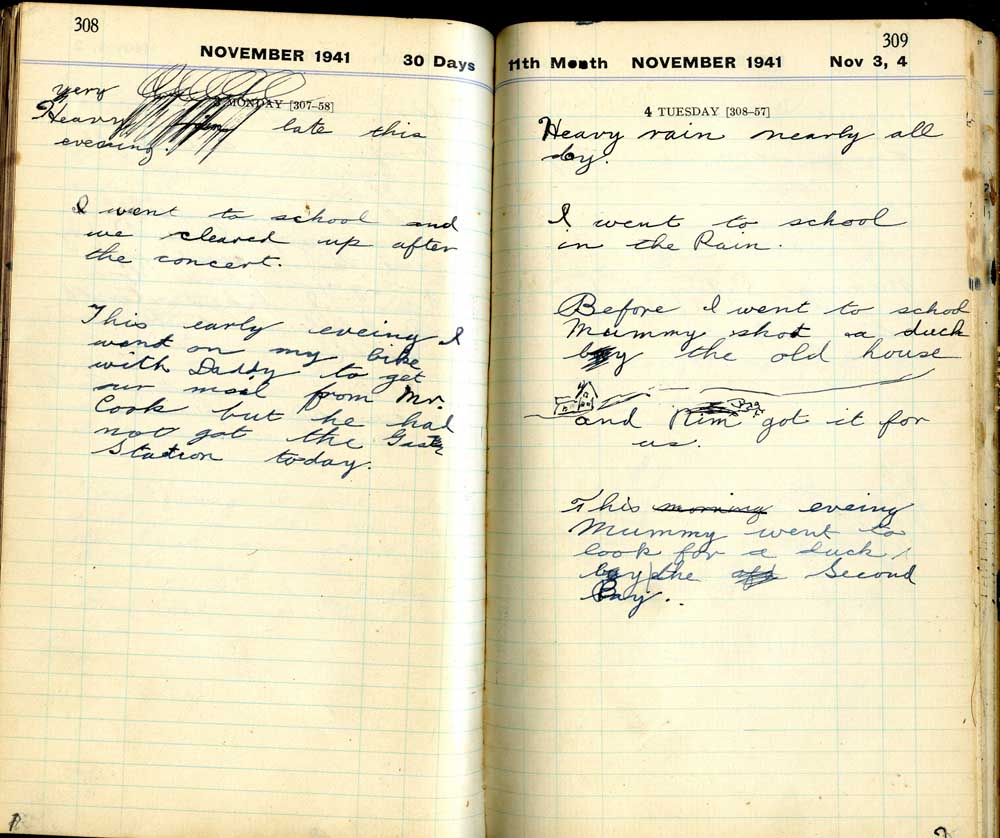 308
NOVEMBER 1941 30 Days
3 MONDAY [307–58]
very
Heavy late this
evening.
I went to school and
we cleared up after
the concert.
This early eveing I
went on my bike
with Daddy to get
our mail from Mr.
Cook but he had
not got the
Station today.
309
11th Month NOVEMBER 1941 Nov 3, 4
4 TUESDAY [308–57]
Heavy rain nearly all
day.
I went to school
in the Rain.
Before I went to school
Mummy shot a duck
by the old house
and Rim got it for
us.
This morning eveing
Mummy went to
look for a duck
by the Second
Bay.